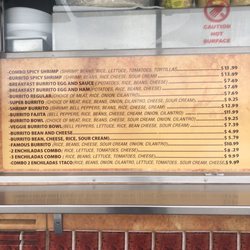 CAUTION
HOT
SURFACE
COMBO SPICY SHRIMP (SHRIMP, BEANS, RICE, LETTUCE, TOMATOES, TORTILLAS) $13.99
BURRITO SPICY SHRIMP (SHRIMP, BEANS, RICE, CHEESE, SOUR CREAM) $13.69
BREAKFAST BURRITO EGG AND SAUCE (POTATOES, RICE, BEANS, CHEESE) $7.69
BREAKFAST BURRITO EGG AND HAM (POTATOES, RICE, BEANS, CHEESE) $7.69
BURRITO REGULAR (CHOICE OF MEAT, RICE, ONION, CILANTRO) $7.69
SUPER BURRITO (CHOICE OF MEAT, RICE, BEANS, ONION, CILANTRO, CHEESE, SOUR CREAM) $9.25
SHRIMP BURRITO (SHRIMP, BEANS, RICE, ONION, CILANTRO, CHEESE, SOUR CREAM) $12.99
BURRITO FAJITA (BELL PEPPERS, RICE, BEANS, ONION, CILANTRO, CHEESE, SOUR CREAM)
BURRITO BOWL (CHOICE OF MEAT, RICE, BEANS, ONION, CILANTRO, CHEESE, SOUR CREAM) $9.25
VEGGIE BURRITO BOWL (BELL PEPPERS, LETTUCE, RICE, BEANS, CHEESE, SOUR CREAM) $7.39
BURRITO BEAN AND CHEESE $4.99
BURRITO BEAN, CHEESE, RICE, SOUR CREAM $5.79
FAMOUS BURRITO (RICE, BEANS, ONION, CILANTRO, CHEESE, SOUR CREAM) $10.99
2 ENCHILADAS COMBO (RICE, BEANS, LETTUCE, TOMATOES, CHEESE)
3 ENCHILADAS COMBO (RICE, BEANS, LETTUCE, TOMATOES, CHEESE) $9.97
COMBO 2 ENCHILADAS 1TACO (RICE, BEANS, LETTUCE, TOMATOES, SOUR CREAM, CHEESE) $9.97